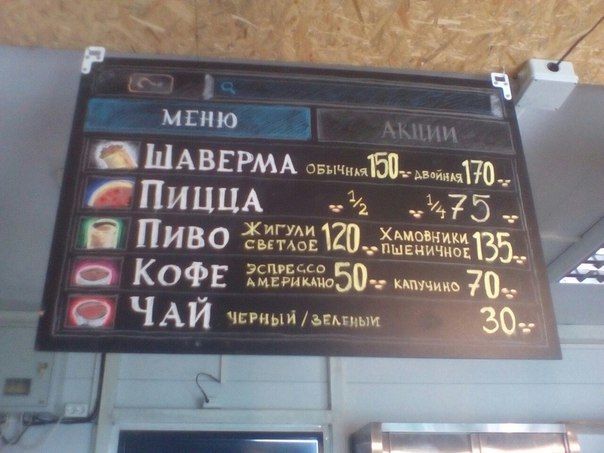 МЕНЮ АКЦИИ
ШАВЕРМА ОБЫЧНАЯ 150 ДВОЙНАЯ 170
ПИЦЦА 1/2 1/4 75
ПИВО ЖИГУЛИ СВЕТЛОЕ 120 ХАМОВНИКИ ПШЕНИЧНОЕ 135
КОФЕ ЭСПРЕССО АМЕРИКАНО 50 КАПУЧИНО 70
ЧАЙ ЧЕРНЫЙ/ЗЕЛЕНЫЙ 30